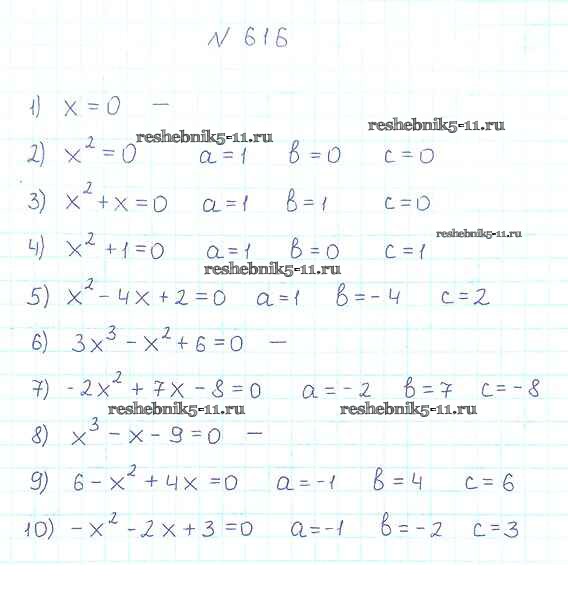 № 616
1) x = 0 —
reshebnik5-11.ru
reshebnik5-11.ru
2) x² = 0 a = 1 b = 0 c = 0
3) x² + x = 0 a = 1 b = 1 c = 0
reshebnik5-11.ru
4) x² + 1 = 0 a = 1 b = 0 c = 1
reshebnik5-11.ru
5) x² - 4x + 2 = 0 a = 1 b = - 4 c = 2
6) 3x³ - x² + 6 = 0 —
7) -2x² + 7x - 8 = 0 a = - 2 b = 7 c = - 8
reshebnik5-11.ru reshebnik5-11.ru
8) x³ - x - 9 = 0 —
9) 6 - x² + 4x = 0 a = -1 b = 4 c = 6
10) -x² - 2x + 3 = 0 a = -1 b = - 2 c = 3